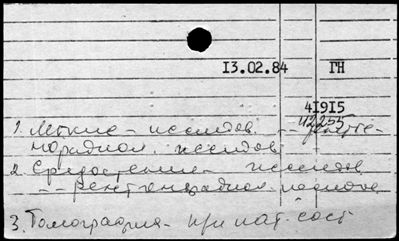 13.02.84 ГН
41915
42255
1. Легкие - исследов. -- рентге-
норадиол. исследов.
2. Средостение - исследов.
-- рентгенорадиол. исследов.
3. Томография - при пат. сост.